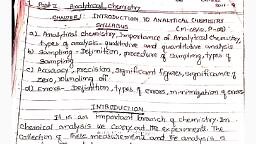 Part I Analytical Chemistry
CHAPTER I: INTRODUCTION TO ANALYTICAL CHEMISTRY
SYLLABUS
a) Analytical chemistry, Importance of Analytical chemistry,
types of analysis- qualitative and quantitative analysis
b) Sampling - Definition, procedure of sampling, types of
sampling
c) Accuracy, precision, Significant figures, significance of
zero, rounding off
d) Errors - Definition, types of errors, minimization of errors
INTRODUCTION
It is an important branch of chemistry. In
chemical analysis we carry out the experiments. The
collection of these measurements and the analysis